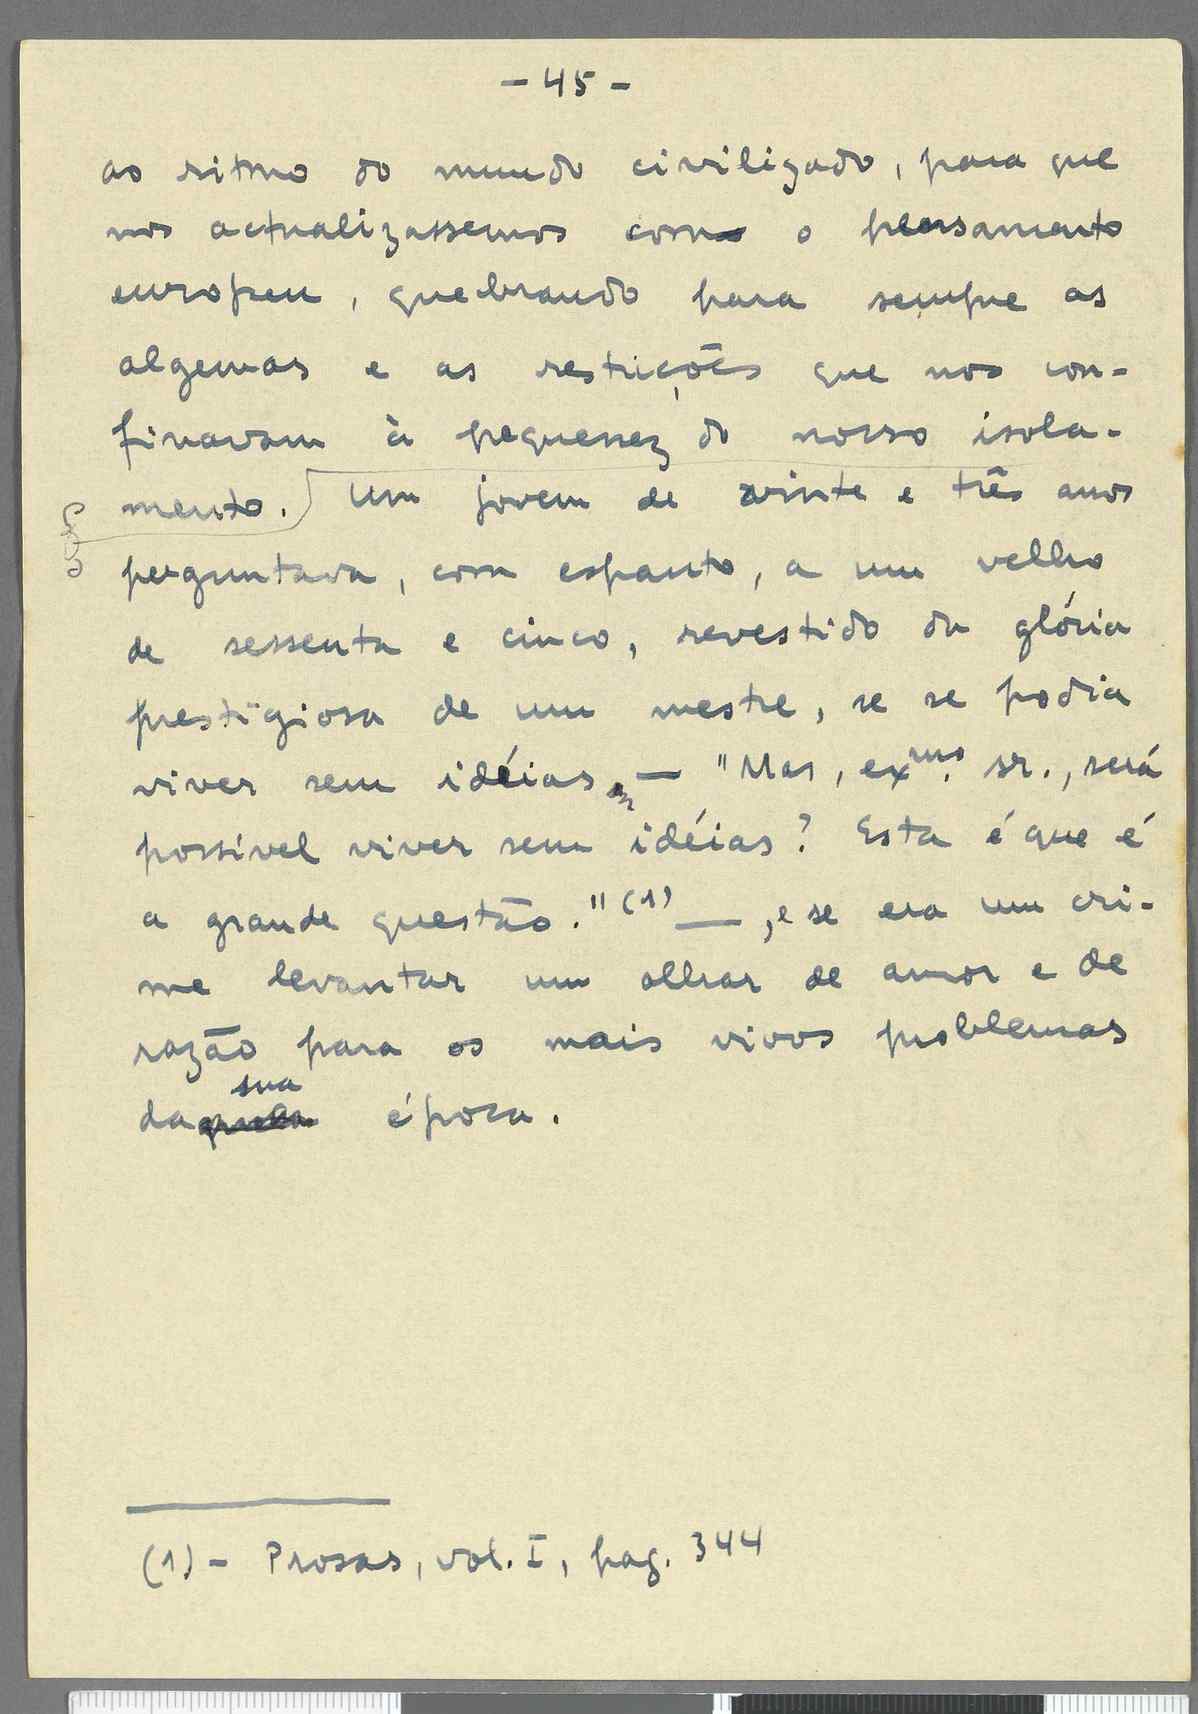 - 45 -
ao ritmo do mundo civilizado, para que
nos actualizassemos com o pensamento
europeu, quebrando para sempre as
algemas e as restrições que nos con-
finavam à pequenez do nosso isola-
mento. Um jovem de vinte e três anos
perguntava, com espanto, a um velho
de sessenta e cinco, revestido da glória
prestigiosa de um mestre, se se podia
viver sem idéias, — "Mas, exmo. sr., será
possível viver sem idéias? Esta é que é
a grande questão." (1) —, e se era um cri-
me levantar um olhar de amor e de
razão para os mais vivos problemas
da sua época.
(1) - Prosas, vol. I, pag. 344